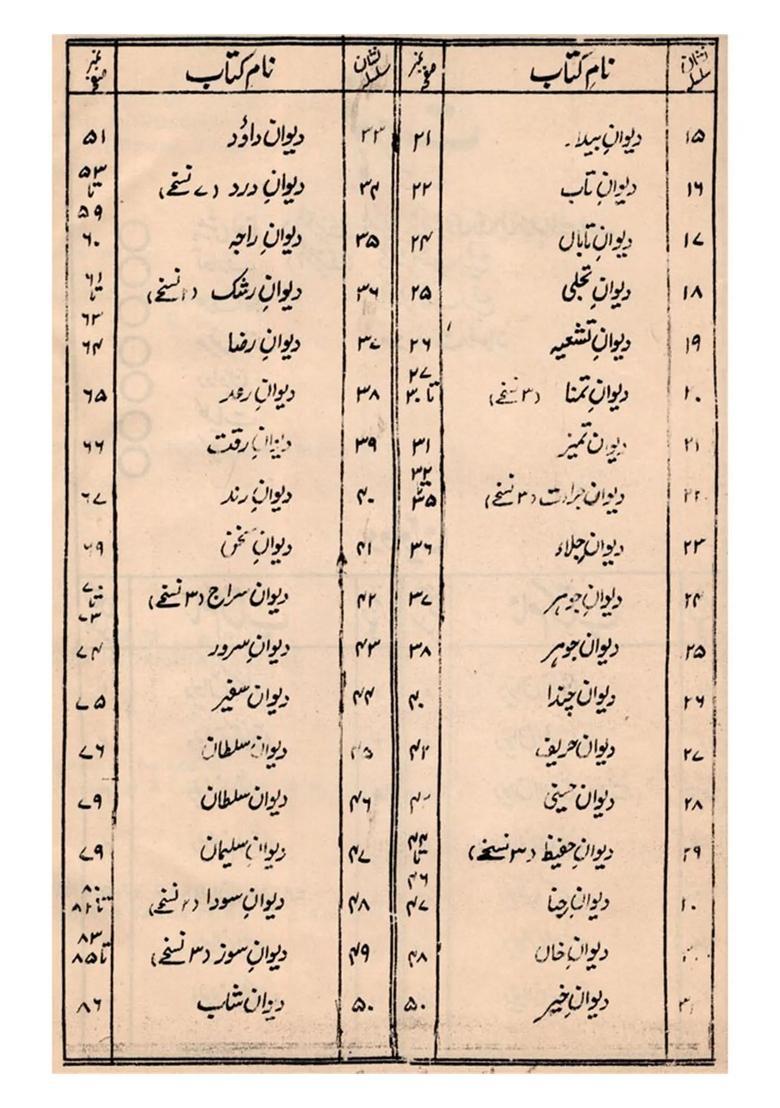 نشان سلسلہ نام کتاب نمبر صفحہ نشان سلسلہ نام کتاب نمبر صفحہ
۱۵ دیوانِ بیدار ۲۱ ۳۳ دیوانِ داؤد ۵۱
۱۶ دیوانِ تاب ۲۲ ۳۴ دیوانِ درد (۷ نسخے) ۵۳ تا ۵۹
۱۷ دیوانِ تاباں ۲۴ ۳۵ دیوانِ راجہ ۶۰
۱۸ دیوانِ تجلی ۲۵ ۳۶ دیوانِ رشک (۲ نسخے) ۶۱ تا ۶۳
۱۹ دیوانِ تشعیہ ۲۶ ۳۷ دیوانِ رضا ۶۴
۲۰ دیوانِ تمنا (۳ نسخے) ۲۷ تا ۳۰ ۳۸ دیوانِ رعد ۶۵
۲۱ دیوانِ تمیز ۳۱ ۳۹ دیوانِ رقت ۶۶
۲۲ دیوانِ جرات (۳ نسخے) ۳۲ تا ۳۵ ۴۰ دیوانِ رند ۶۷
۲۳ دیوانِ جلاء ۳۶ ۴۱ دیوانِ سخن ۶۹
۲۴ دیوانِ جوہر ۳۷ ۴۲ دیوانِ سراج (۳ نسخے) ۷۰ تا ۷۳
۲۵ دیوانِ جوہر ۳۸ ۴۳ دیوانِ سرور ۷۴
۲۶ دیوانِ چندا ۴۰ ۴۴ دیوانِ سفیر ۷۵
۲۷ دیوانِ حریف ۴۲ ۴۵ دیوانِ سلطان ۷۶
۲۸ دیوانِ حسینی ۴۶ دیوانِ سلطان ۷۹
۲۹ دیوانِ حفیظ (۳ نسخے) ۴۴ تا ۴۶ ۴۷ دیوانِ سلیمان ۷۹
دیوانِ حنا ۴۷ ۴۸ دیوانِ سودا (۲ نسخے) ۸۰ تا ۸۲
دیوانِ خاں ۴۸ ۴۹ دیوانِ سوز (۳ نسخے) ۸۳ تا ۸۵
دیوانِ خیر ۵۰ ۵۰ دیوانِ شاب ۸۶